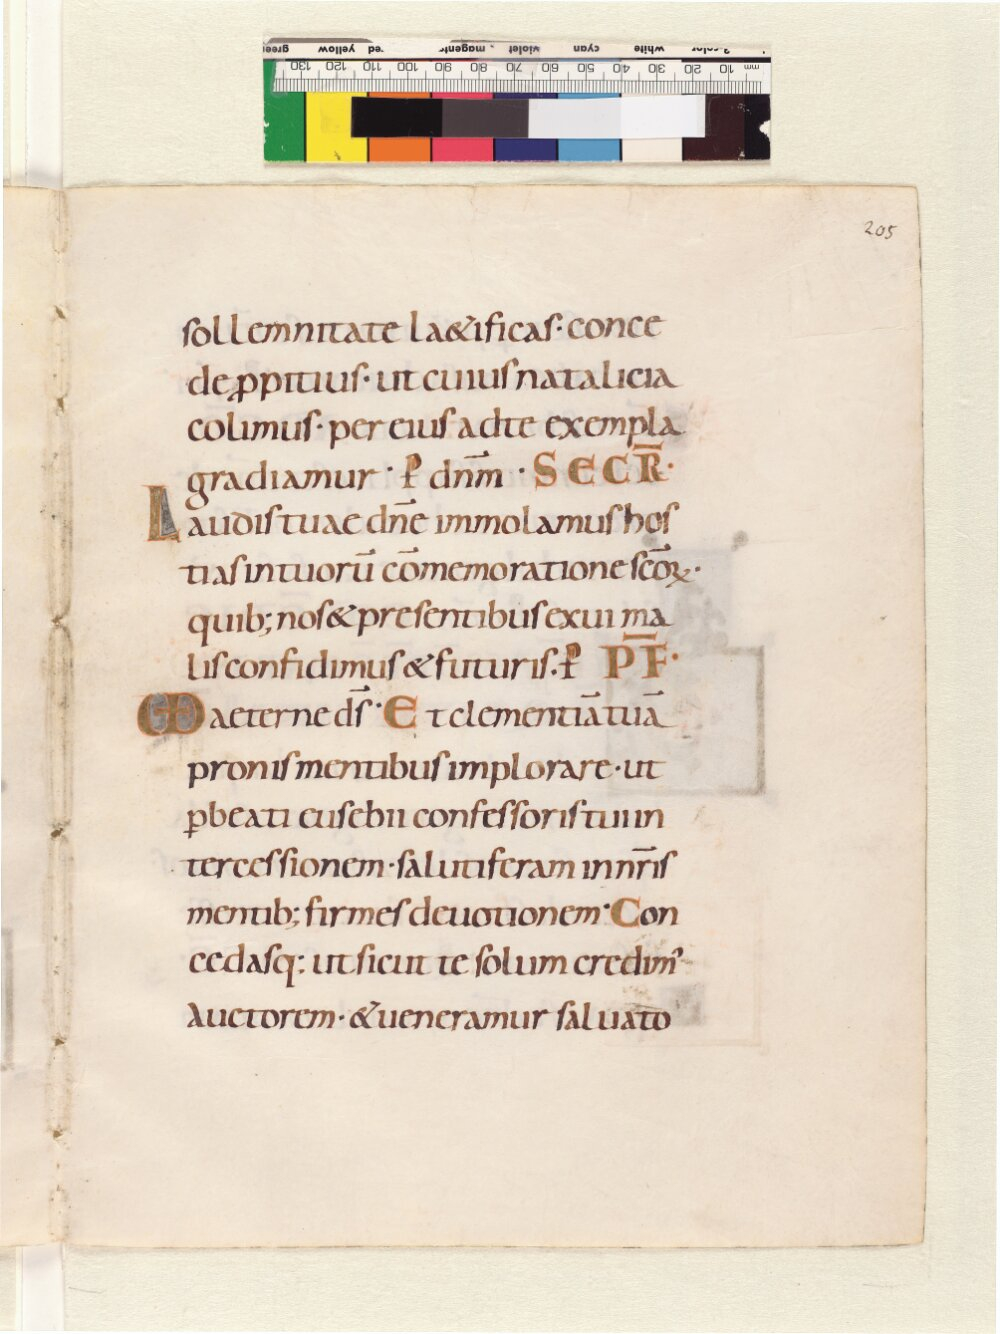 205
sollemnitate laetificas· conce
de ꝓpitius· ut cuius natalicia
colimus· per eius ad te exempla
gradiamur· P̲ dn̄m· SECR̄·
Laudis tuae dn̄e immolamus hos
tias in tuorū cōmemoratione sc̄oꝝ·
quib; nos & presentibus exui ma
lis confidimus & futuris. P̲ PF̄·
VD aeterne ds̄· Et clementiā tuā
pronis mentibus implorare· ut
ꝑ beati eusebii confessoris tui in
tercessionem· salutiferam in nr̄is
mentib; firmes deuotionem· Con
cedasq: ut sicut te solum credim᾽
auctorem· & ueneramur saluato